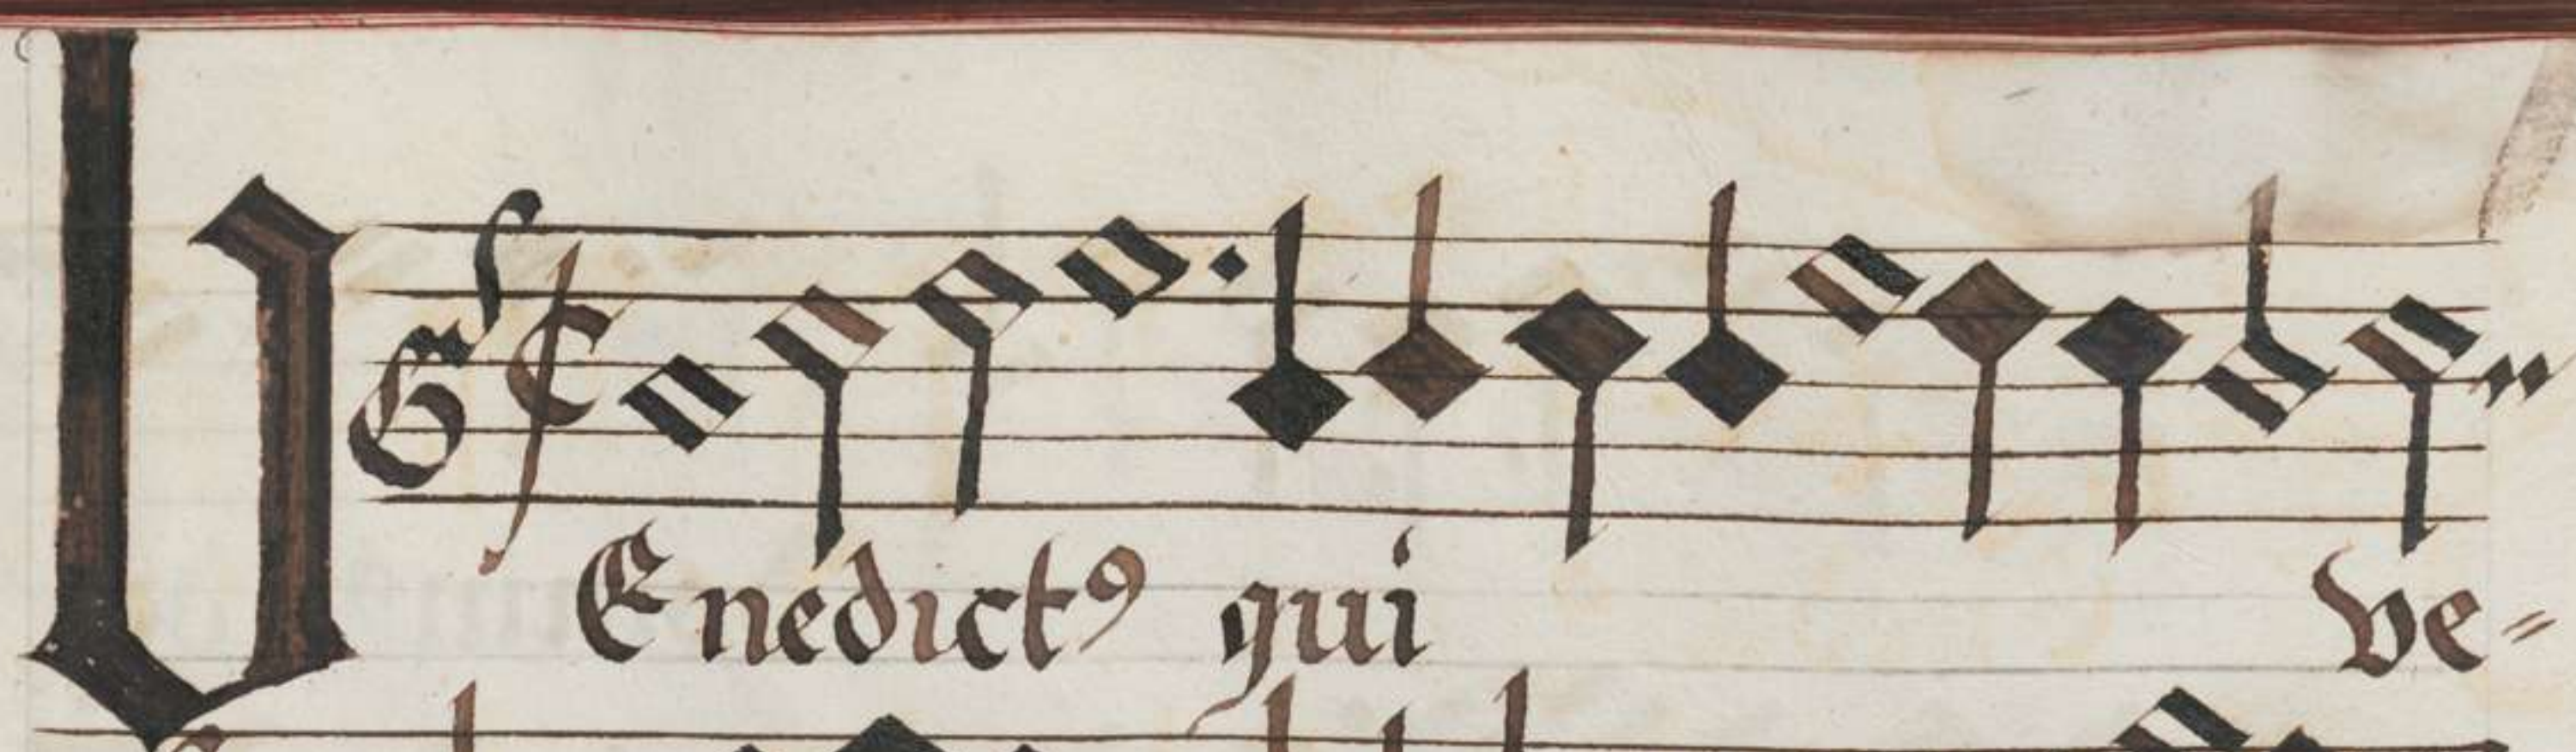 BEnedictꝰ qui ve=